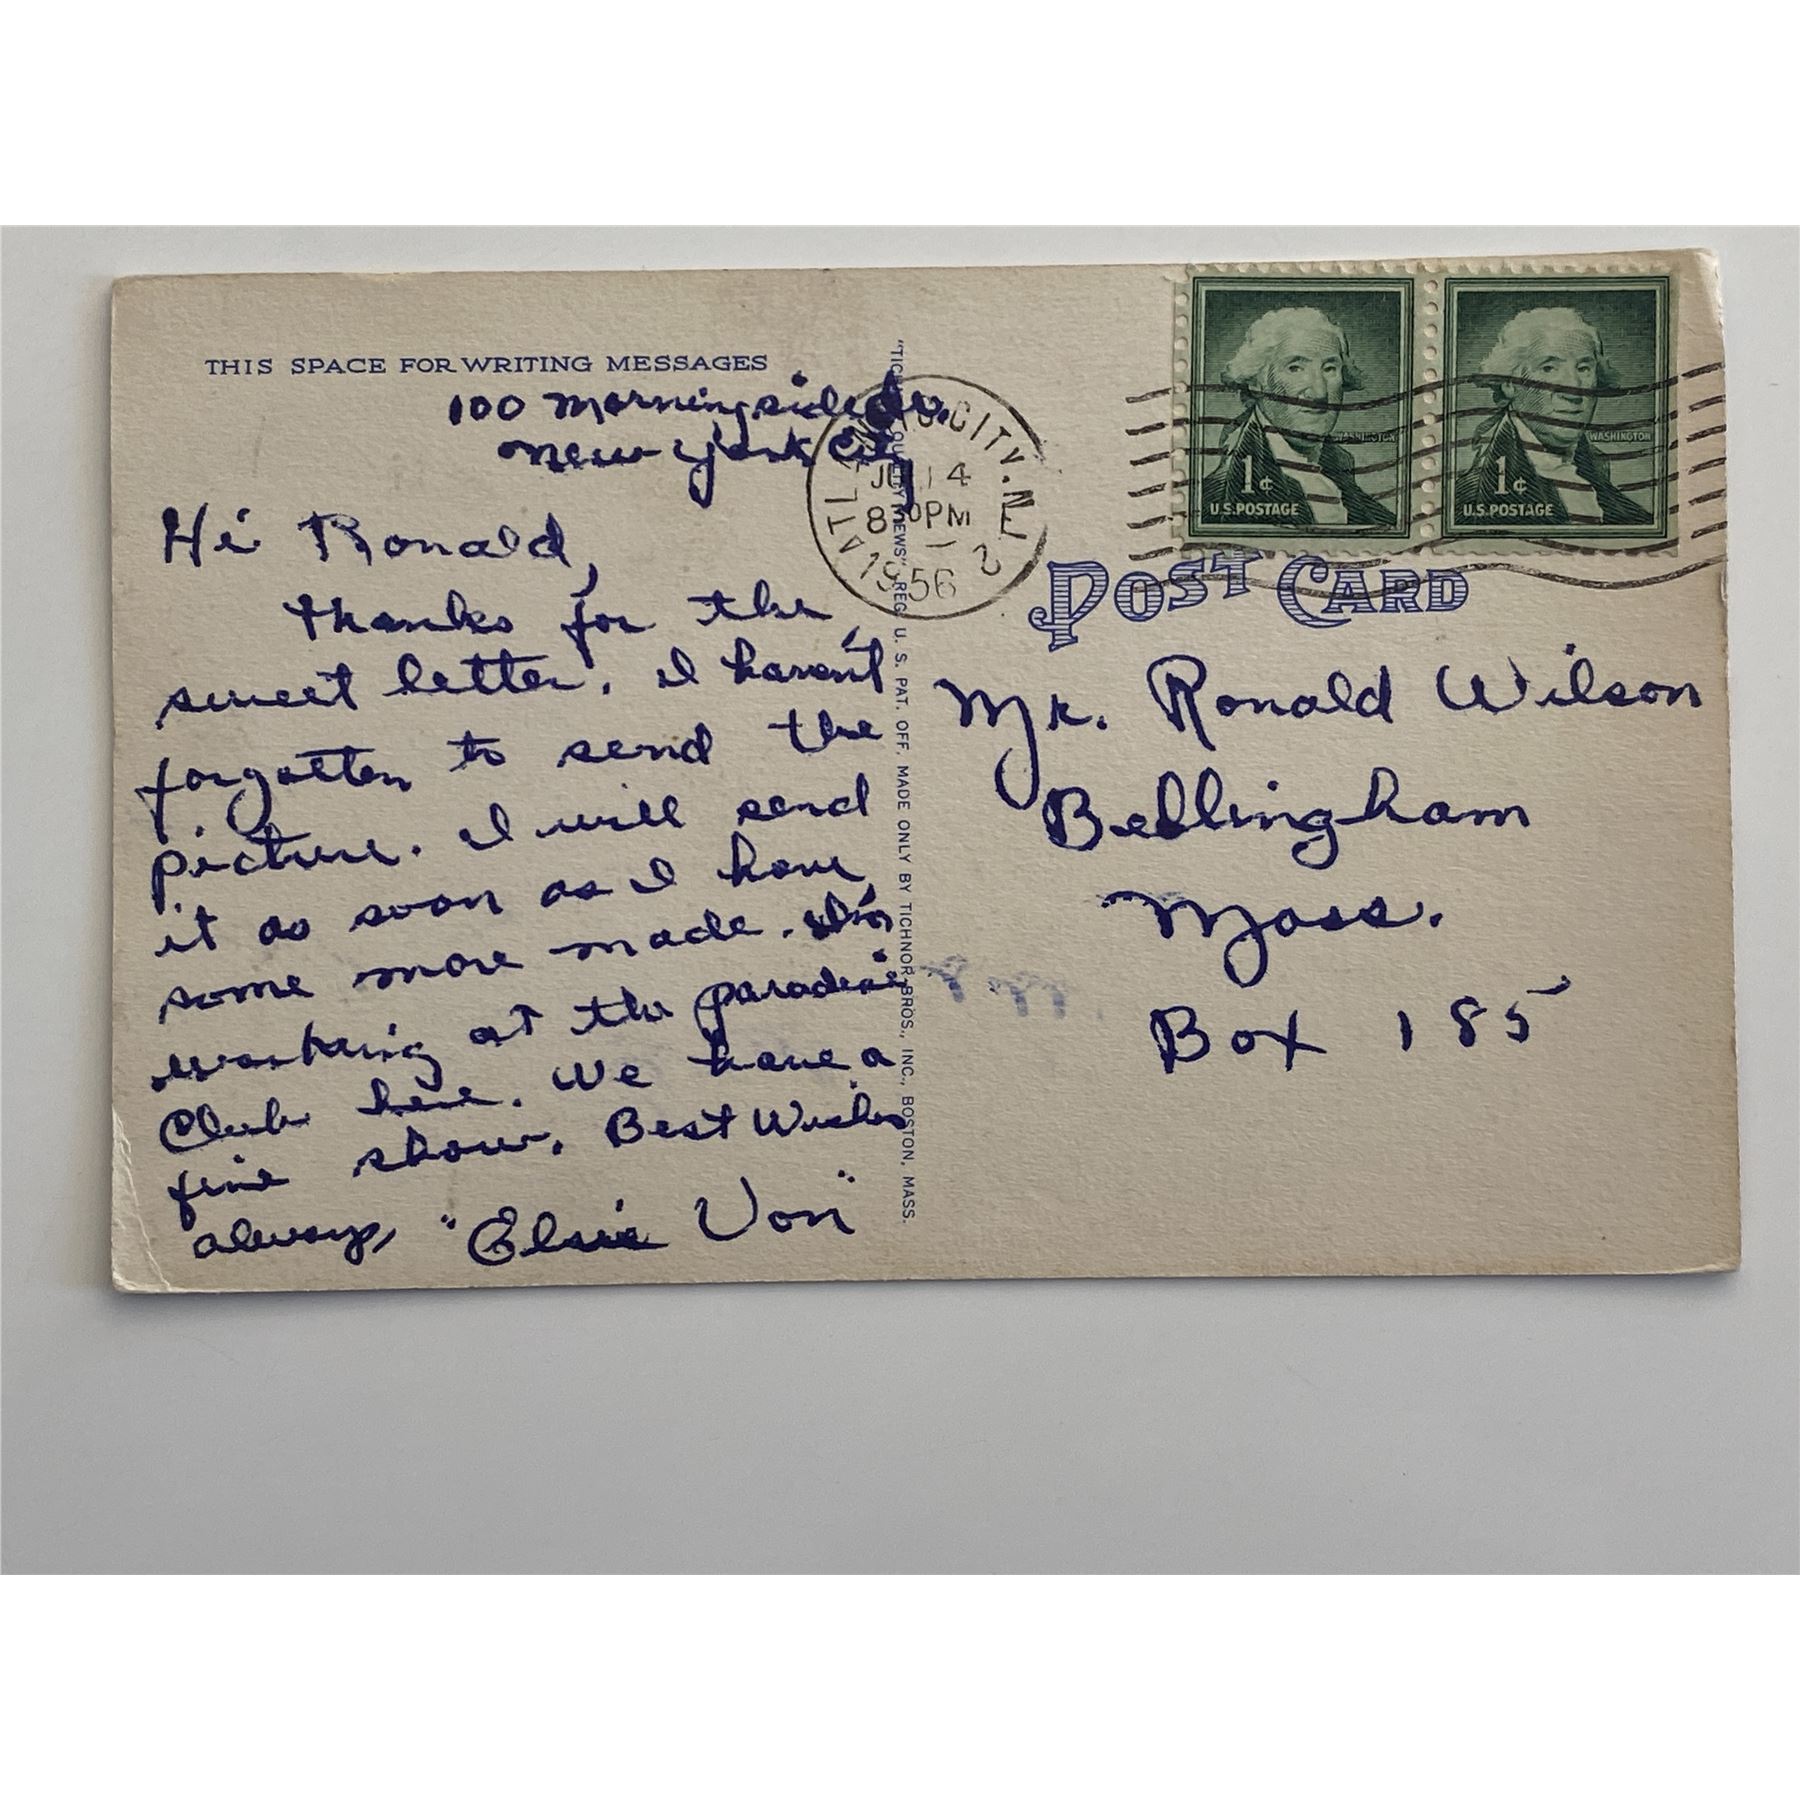 THIS SPACE FOR WRITING MESSAGES
100 Morningside Dr.
New York City
Hi Ronald,
Thanks for the
sweet letter. I haven't
forgotten to send the
picture. I will send
it as soon as I have
some more made. I'm
working at the "paradise"
Club here. We have a
fine show. Best Wishes
always, "Elsie Von"
"TICHNOR QUALITY VIEWS" REG. U. S. PAT. OFF. MADE ONLY BY TICHNOR BROS., INC., BOSTON, MASS.
ATLANTIC CITY, N.J. 2
14
8 30 PM
1956
WASHINGTON
1¢
U.S. POSTAGE
WASHINGTON
1¢
U.S. POSTAGE
POST CARD
Mr. Ronald Wilson
Bellingham
Mass.
Box 185